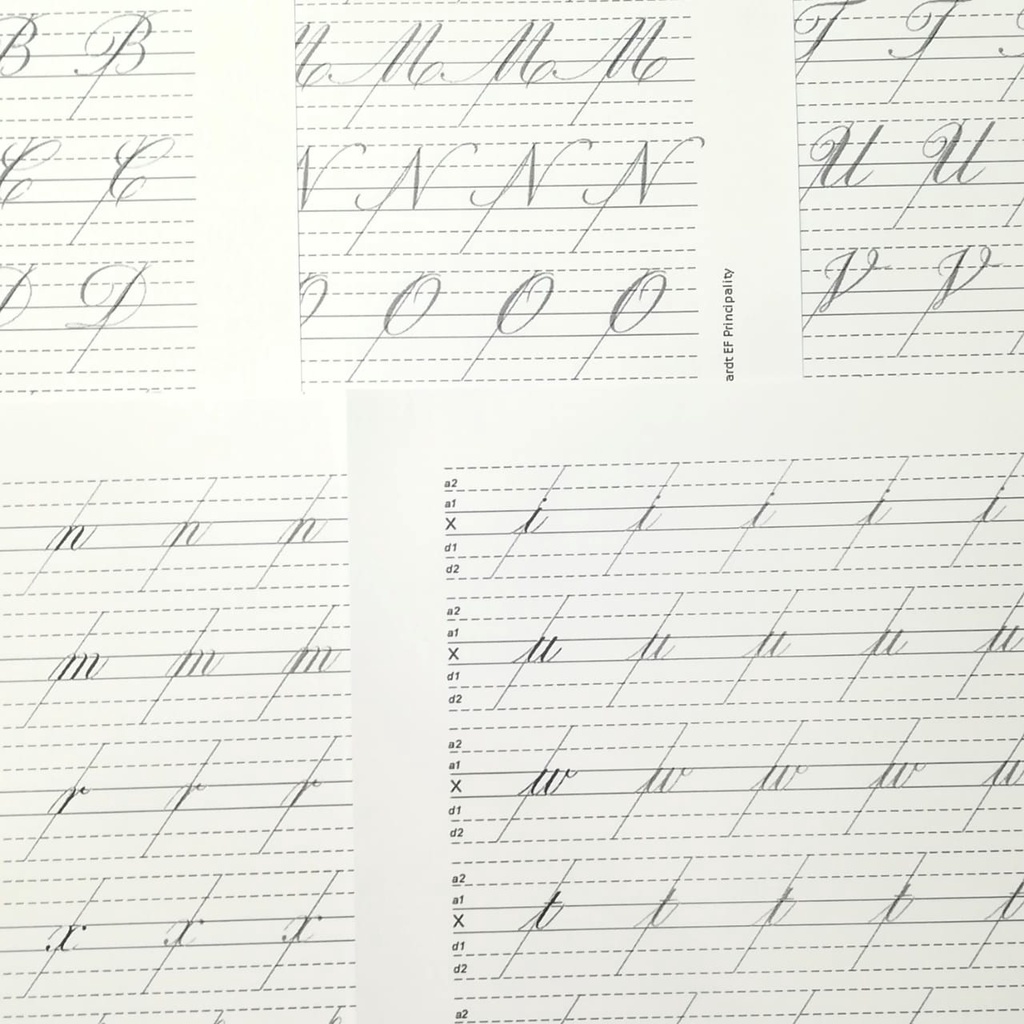 B B
C C
D D
M M M M
N N N N
O O O O
ardt EF Principality
T T
U U
V V
n n n
m m m
r r r
x x x
a2
a1
X i i i i i
d1
d2
a2
a1
X u u u u u
d1
d2
a2
a1
X w w w w w
d1
d2
a2
a1
X t t t t t
d1
d2
a2